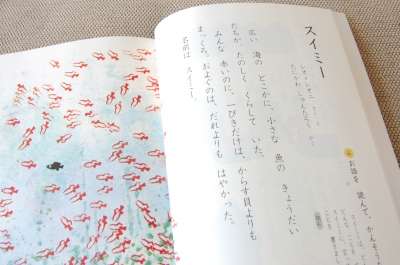 スイミー
広い 海の どこかに、小さな 魚の きょうだい
たちが、たのしく くらして いた。
みんな 赤いのに、一ぴきだけは、からす貝よりも
まっくろ。およぐのは、だれよりも はやかった。
名前は スイミー。
お話を 読んで、かんそうを